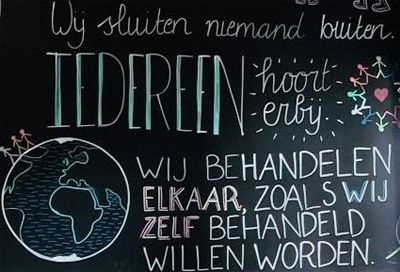 Wij sluiten niemand buiten.
IEDEREEN hoort
erbij.
WIJ BEHANDELEN
ELKAAR, ZOALS WIJ
ZELF BEHANDELD
WILLEN WORDEN.